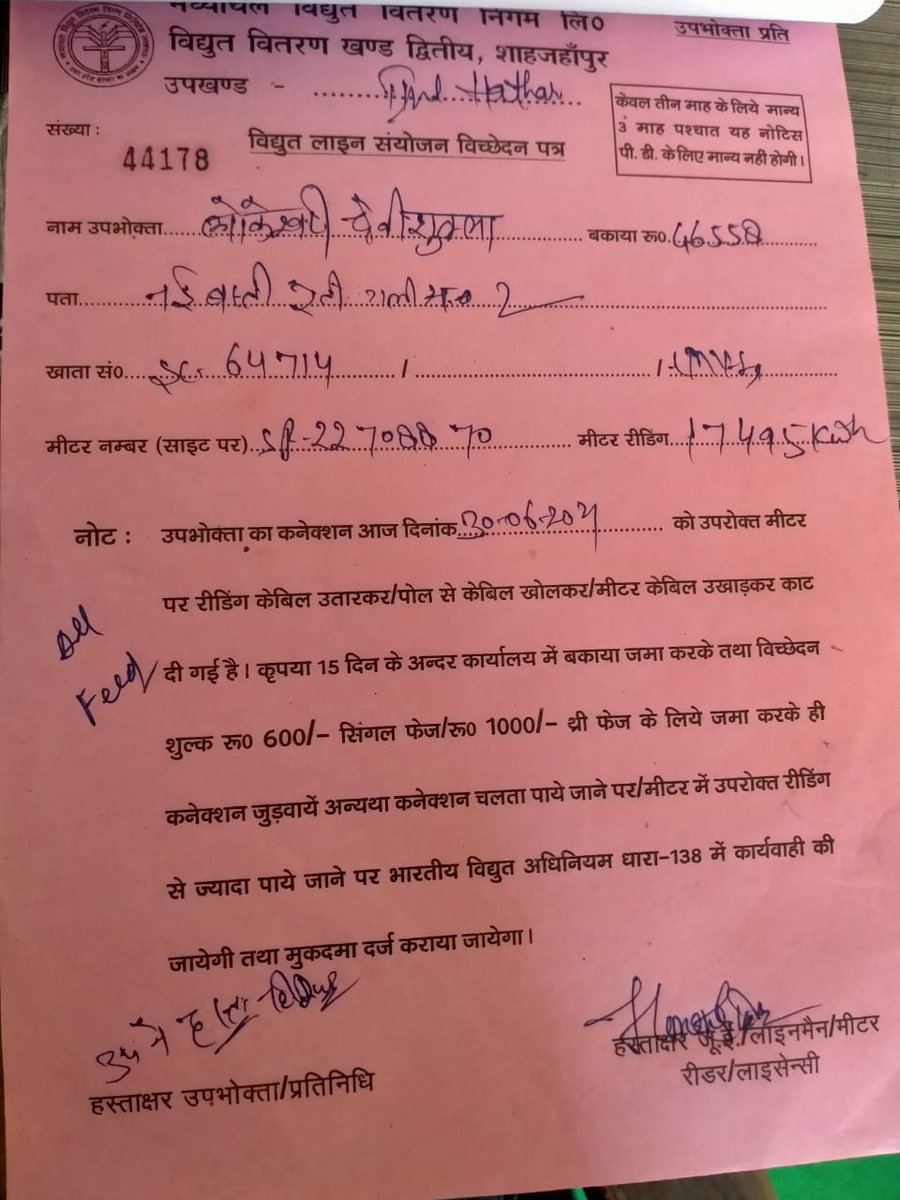 मध्यांचल विद्युत वितरण निगम लि०
उपभोक्ता प्रति
विद्युत वितरण खण्ड द्वितीय, शाहजहाँपुर
उपखण्ड -
केवल तीन माह के लिये मान्य
3 माह पश्चात यह नोटिस
पी. डी. के लिए मान्य नही होगी।
संख्या :
44178
विद्युत लाइन संयोजन विच्छेदन पत्र
नाम उपभोक्ता..... देवी शुक्ला ..... बकाया रू०.
पता..... नई बस्ती गली 2
खाता सं०..... 64714 ..... / ..... /
मीटर नम्बर (साइट पर)..... ..... मीटर रीडिंग. 17495 kwh
नोट : उपभोक्ता का कनेक्शन आज दिनांक 30-06-2021 ..... को उपरोक्त मीटर
पर रीडिंग केबिल उतारकर/पोल से केबिल खोलकर/मीटर केबिल उखाड़कर काट
दी गई है। कृपया 15 दिन के अन्दर कार्यालय में बकाया जमा करके तथा विच्छेदन
शुल्क रू० 600/- सिंगल फेज/रू० 1000/- थ्री फेज के लिये जमा करके ही
कनेक्शन जुड़वायें अन्यथा कनेक्शन चलता पाये जाने पर/मीटर में उपरोक्त रीडिंग
से ज्यादा पाये जाने पर भारतीय विद्युत अधिनियम धारा-138 में कार्यवाही की
जायेगी तथा मुकदमा दर्ज कराया जायेगा।
हस्ताक्षर उपभोक्ता/प्रतिनिधि
हस्ताक्षर जू.ई./लाइनमैन/मीटर
रीडर/लाइसेन्सी